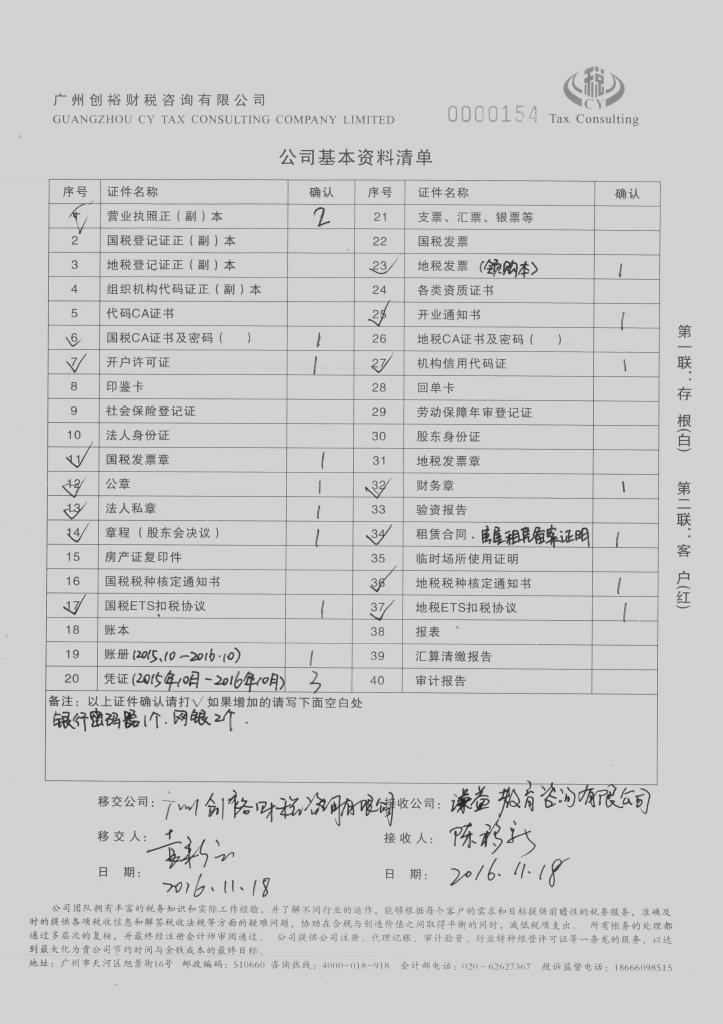 广州创裕财税咨询有限公司
GUANGZHOU CY TAX CONSULTING COMPANY LIMITED
0000154
税
CY
Tax Consulting
公司基本资料清单
序号 证件名称 确认 序号 证件名称 确认
营业执照正（副）本 2 21 支票、汇票、银票等
2 国税登记证正（副）本 22 国税发票
3 地税登记证正（副）本 23 地税发票 (领购本) 1
4 组织机构代码证正（副）本 24 各类资质证书
5 代码CA证书 25 开业通知书 1
6 国税CA证书及密码（ ） 1 26 地税CA证书及密码（ ）
7 开户许可证 1 27 机构信用代码证 1
8 印鉴卡 28 回单卡
9 社会保险登记证 29 劳动保障年审登记证
10 法人身份证 30 股东身份证
11 国税发票章 1 31 地税发票章
12 公章 1 32 财务章 1
13 法人私章 1 33 验资报告
14 章程（股东会决议） 1 34 租赁合同、房屋租赁备案证明 1
15 房产证复印件 35 临时场所使用证明
16 国税税种核定通知书 36 地税税种核定通知书 1
17 国税ETS扣税协议 1 37 地税ETS扣税协议 1
18 账本 38 报表
19 账册 (2015.10-2016.10) 1 39 汇算清缴报告
20 凭证 (2015年10月-2016年10月) 3 40 审计报告
备注：以上证件确认请打√如果增加的请写下面空白处
银行密码器1个. 网银2个.
移交公司：广州创裕财税咨询有限公司 接收公司：谦益教育咨询有限公司
移交人： 接收人：陈
日 期：2016.11.18 日 期：2016.11.18
公司团队拥有丰富的税务知识和实际工作经验，并了解不同行业的运作，能够根据每个客户的需求和目标提供前瞻性的税务服务，准确及
时的提供各项税收信息和解答税收法规等方面的疑难问题，协助在合规与创造价值之间取得平衡的同时，减低税项支出。 所有帐务的处理都
通过多层次的复核，并最终经注册会计师审阅通过。 公司提供公司注册、代理记账、审计验资、行业特种经营许可证等一条龙的服务，以达
到最大化为贵公司节约时间与金钱成本的最终目标。
地址：广州市天河区旭景街16号 邮政编码：510660 咨询热线：4000-018-918 会计部电话：020-62627367 投诉监督电话：18666098515
第一联：存 根(白) 第二联：客 户(红)